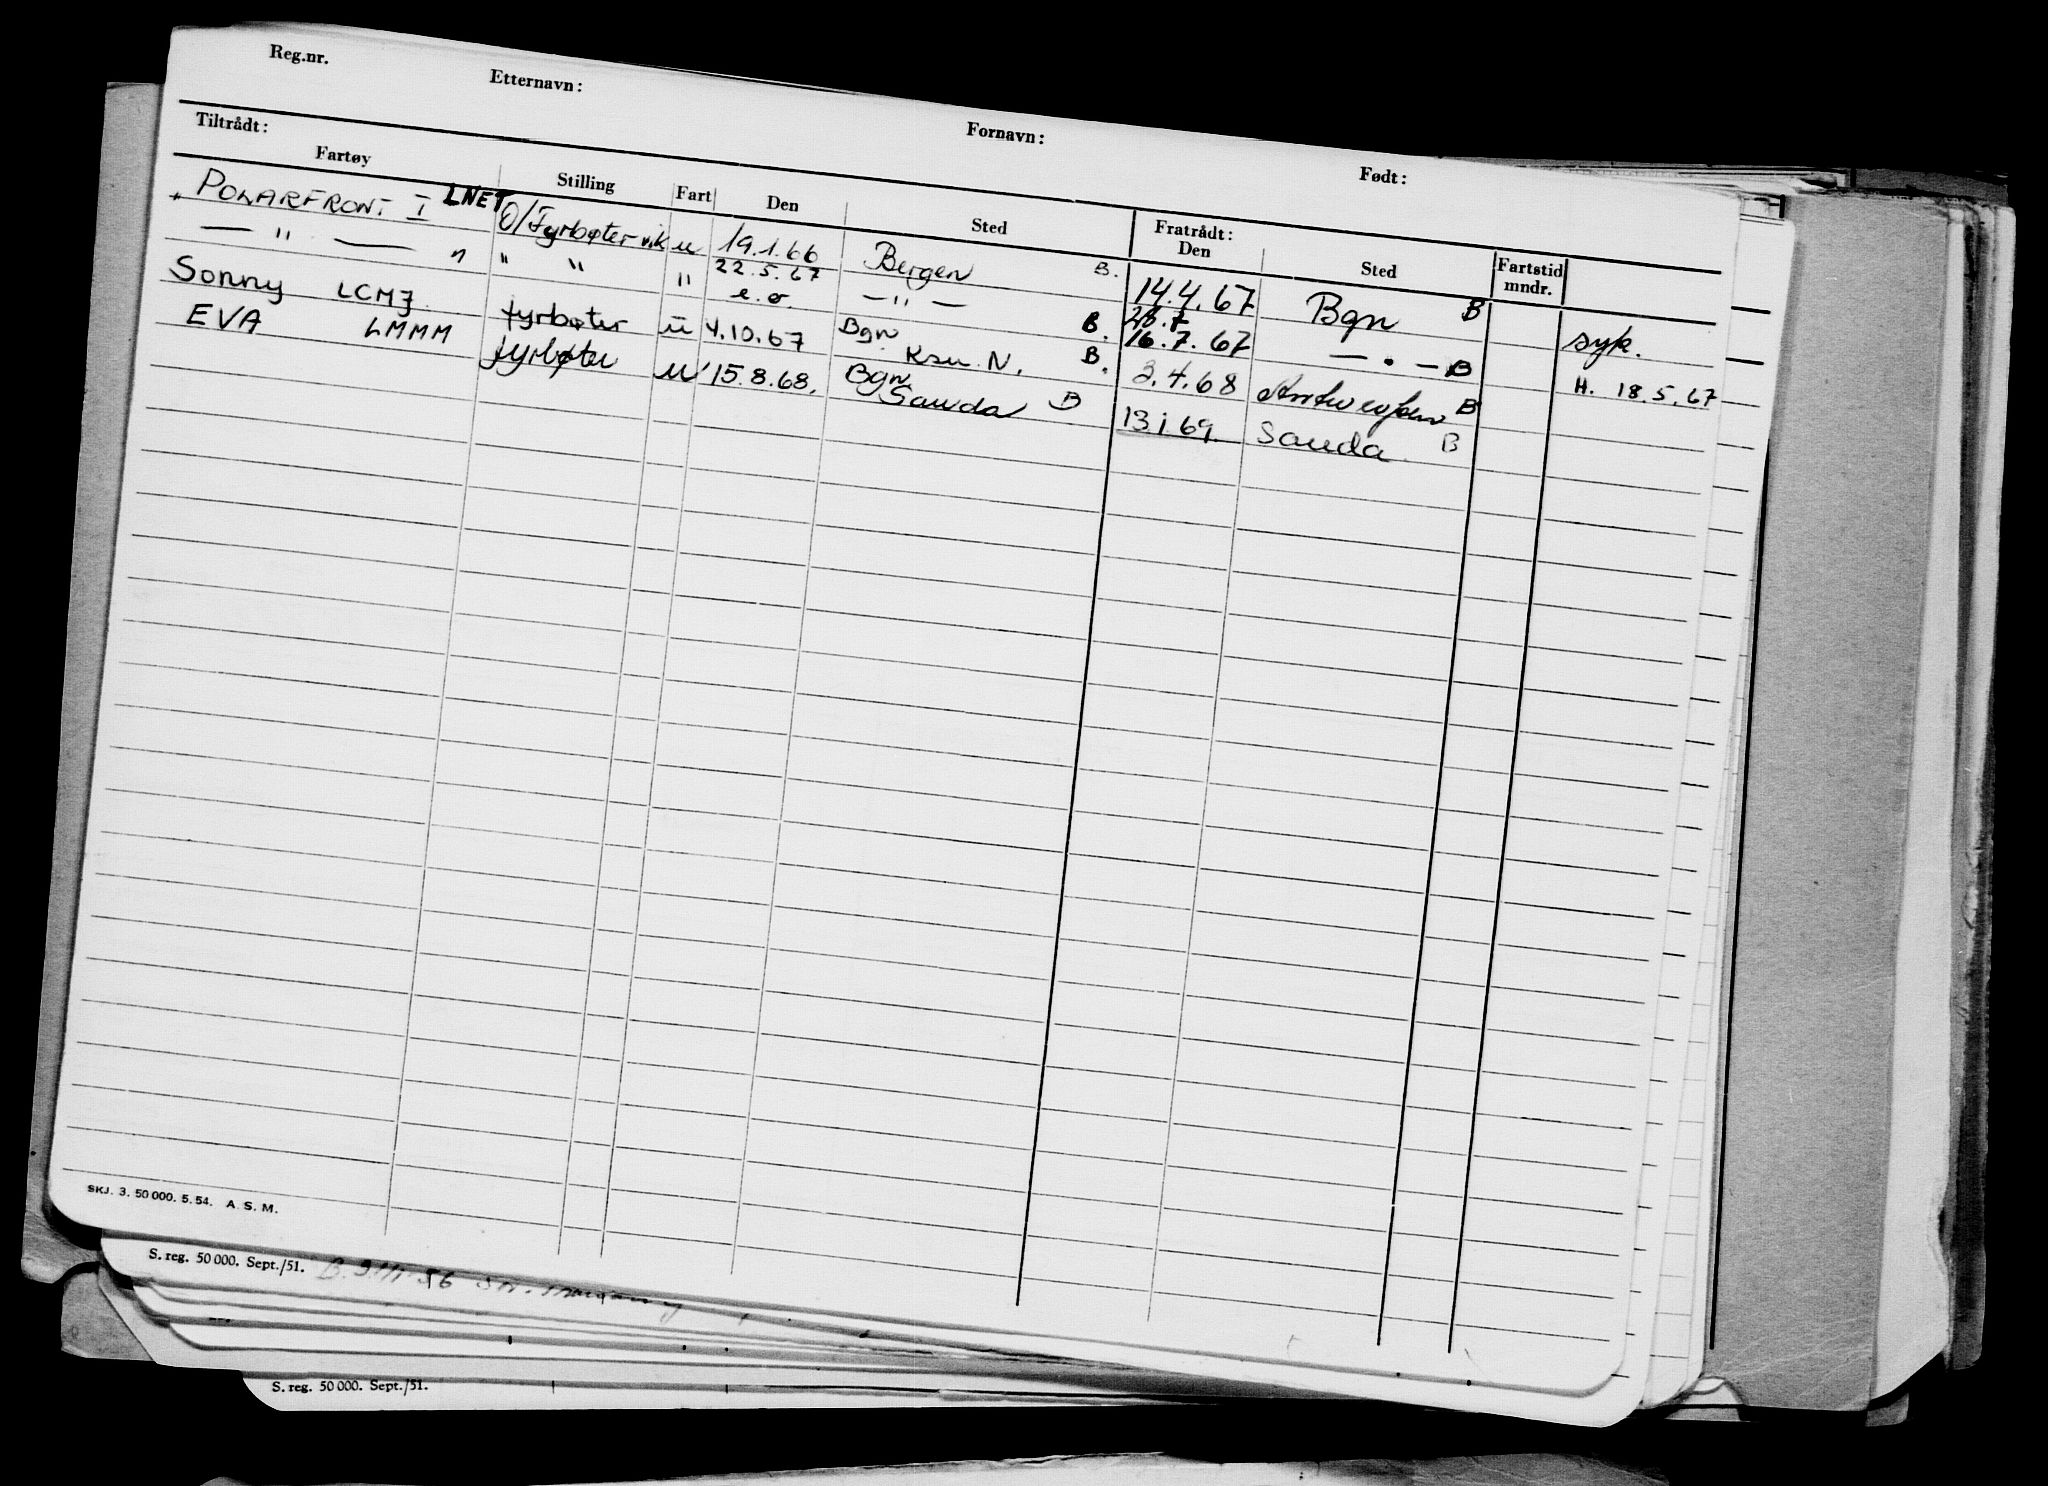 Reg.nr. Etternavn: Fornavn: Født:
Tiltrådt: Fratrådt:
Fartøy Stilling Fart Den Sted Den Sted Fartstid mndr.
" POLARFRONT I LNET O/Fyrbøter vik u 19.1.66 Bergen B. 14.4.67 Bgn B syk.
— " — " " " " 22.5.67 — " — B. 28.7 16.7.67 — " — B H. 18.5.67
e.o.
Sonny LCMJ fyrbøter u 4.10.67 Bgn Ksu. N. B. 3.4.68 Antwerpen B
EVA LMMM fyrbøter u 15.8.68. Bgn Sauda B 13.1.69. Sauda B
SKJ. 3. 50 000. 5. 54. A. S. M.
S. reg. 50 000. Sept./51.
S. reg. 50 000. Sept./51.